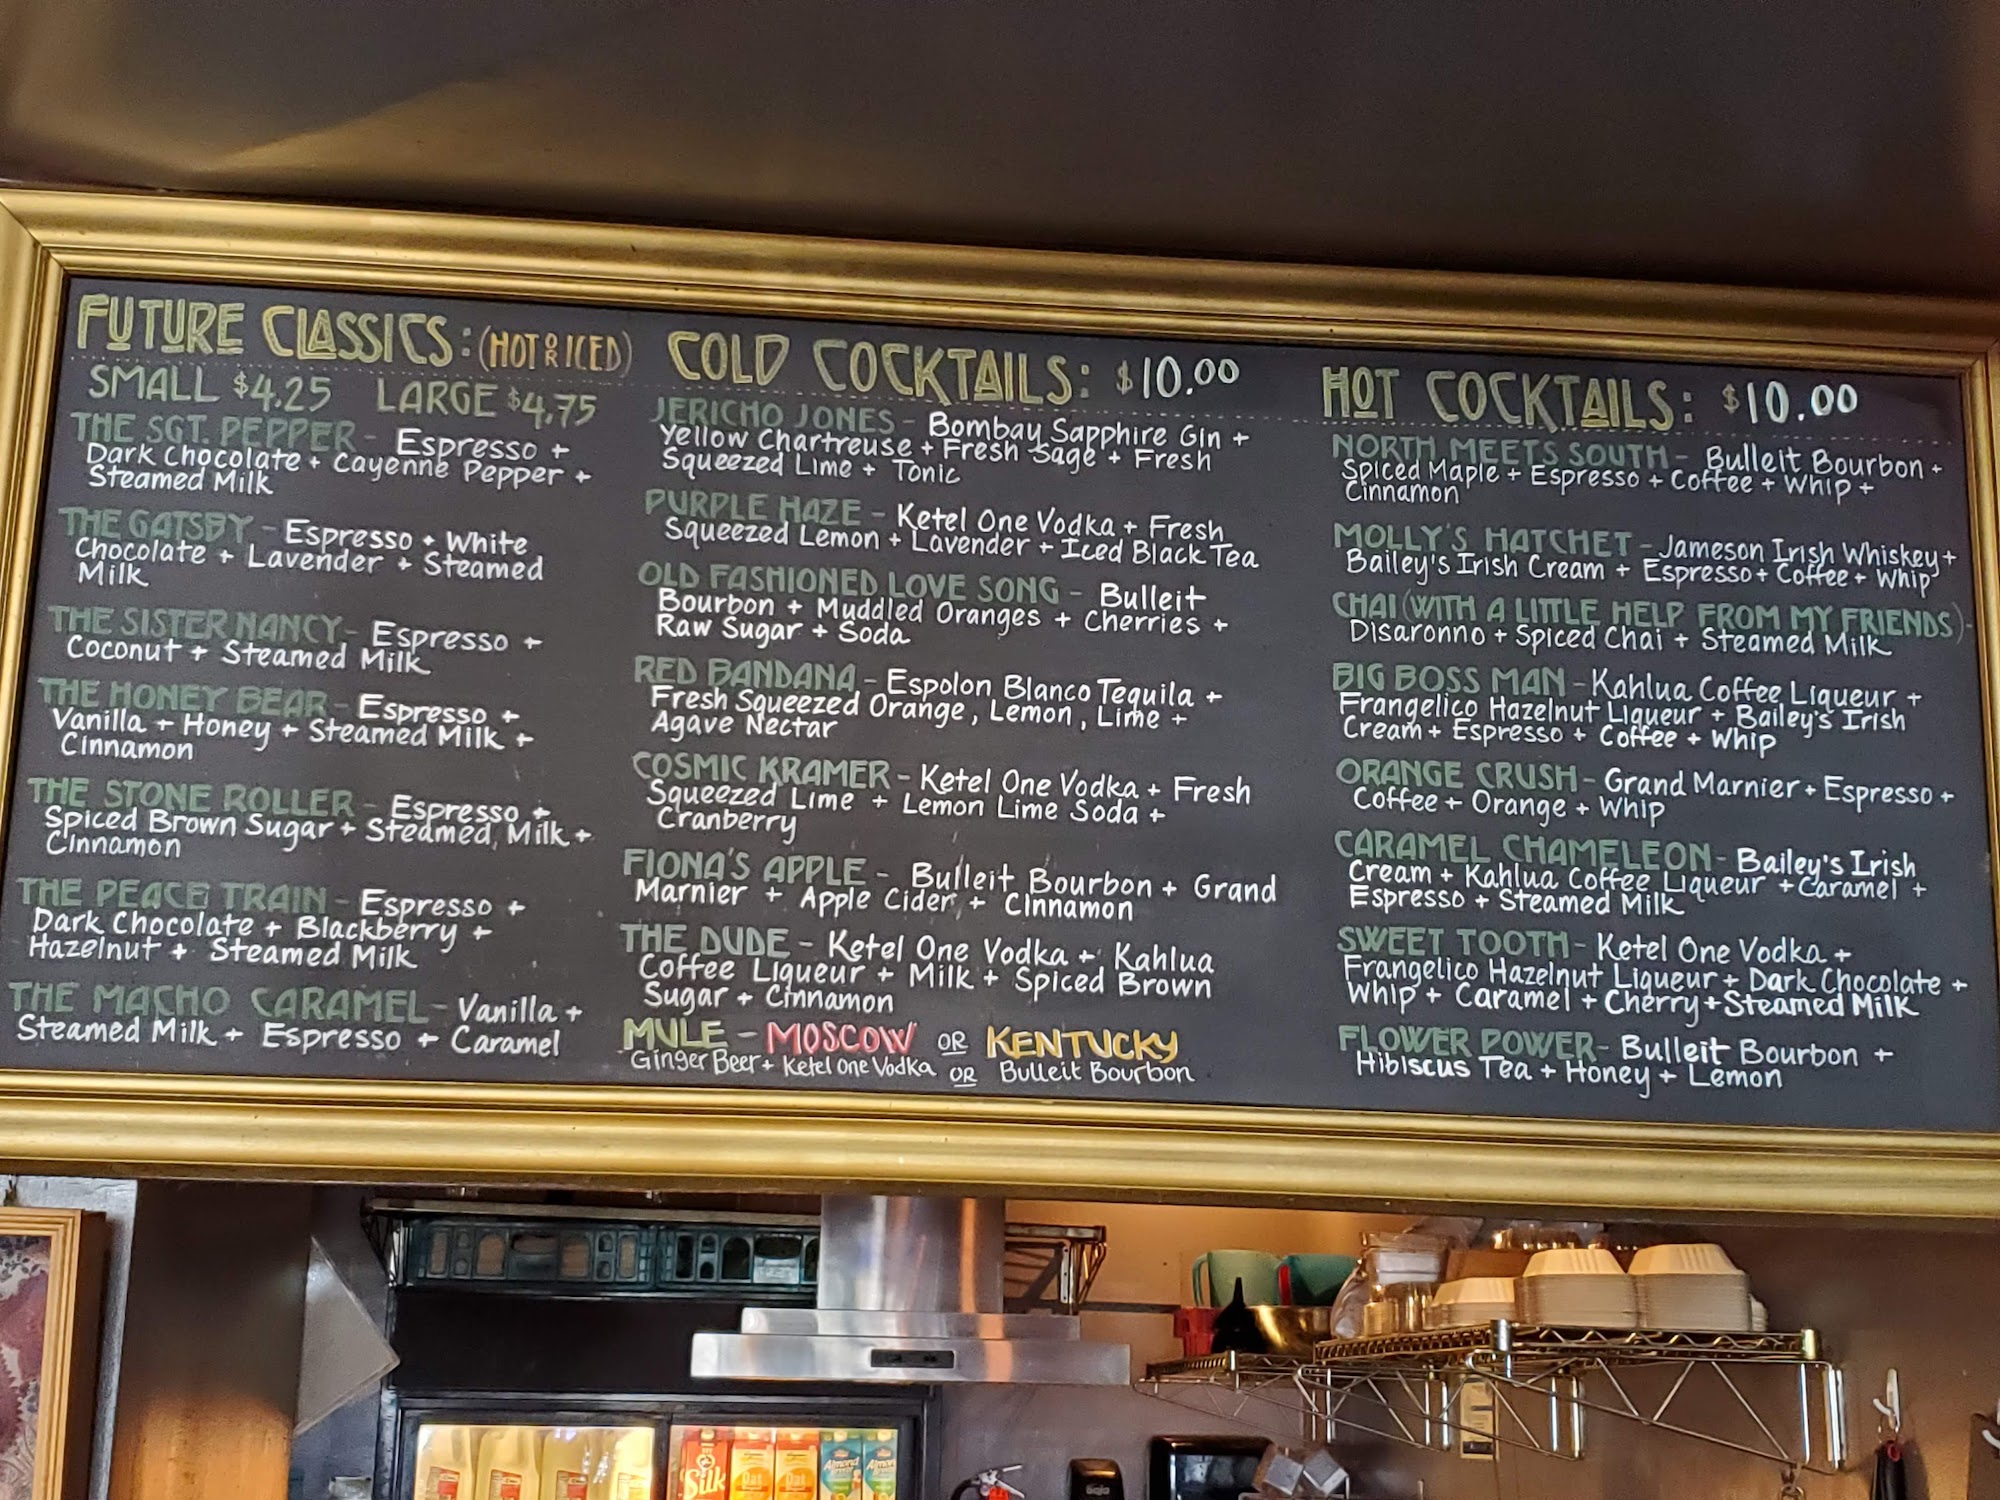 FUTURE CLASSICS: (HOT OR ICED)
SMALL $4.25 LARGE $4.75
THE SGT. PEPPER - Espresso +
Dark Chocolate + Cayenne Pepper +
Steamed Milk
THE GATSBY - Espresso + White
Chocolate + Lavender + Steamed
Milk
THE SISTER NANCY - Espresso +
Coconut + Steamed Milk
THE HONEY BEAR - Espresso +
Vanilla + Honey + Steamed Milk +
Cinnamon
THE STONE ROLLER - Espresso +
Spiced Brown Sugar + Steamed Milk +
Cinnamon
THE PEACE TRAIN - Espresso +
Dark Chocolate + Blackberry +
Hazelnut + Steamed Milk
THE MACHO CARAMEL - Vanilla +
Steamed Milk + Espresso + Caramel
COLD COCKTAILS: $10.00
JERICHO JONES - Bombay Sapphire Gin +
Yellow Chartreuse + Fresh Sage + Fresh
Squeezed Lime + Tonic
PURPLE HAZE - Ketel One Vodka + Fresh
Squeezed Lemon + Lavender + Iced Black Tea
OLD FASHIONED LOVE SONG - Bulleit
Bourbon + Muddled Oranges + Cherries +
Raw Sugar + Soda
RED BANDANA - Espolon Blanco Tequila +
Fresh Squeezed Orange, Lemon, Lime +
Agave Nectar
COSMIC KRAMER - Ketel One Vodka + Fresh
Squeezed Lime + Lemon Lime Soda +
Cranberry
FIONA'S APPLE - Bulleit Bourbon + Grand
Marnier + Apple Cider + Cinnamon
THE DUDE - Ketel One Vodka + Kahlua
Coffee Liqueur + Milk + Spiced Brown
Sugar + Cinnamon
MULE - MOSCOW OR KENTUCKY
Ginger Beer + Ketel One Vodka OR Bulleit Bourbon
HOT COCKTAILS: $10.00
NORTH MEETS SOUTH - Bulleit Bourbon +
Spiced Maple + Espresso + Coffee + Whip +
Cinnamon
MOLLY'S HATCHET - Jameson Irish Whiskey +
Bailey's Irish Cream + Espresso + Coffee + Whip
CHAI (WITH A LITTLE HELP FROM MY FRIENDS) -
Disaronno + Spiced Chai + Steamed Milk
BIG BOSS MAN - Kahlua Coffee Liqueur +
Frangelico Hazelnut Liqueur + Bailey's Irish
Cream + Espresso + Coffee + Whip
ORANGE CRUSH - Grand Marnier + Espresso +
Coffee + Orange + Whip
CARAMEL CHAMELEON - Bailey's Irish
Cream + Kahlua Coffee Liqueur + Caramel +
Espresso + Steamed Milk
SWEET TOOTH - Ketel One Vodka +
Frangelico Hazelnut Liqueur + Dark Chocolate +
Whip + Caramel + Cherry + Steamed Milk
FLOWER POWER - Bulleit Bourbon +
Hibiscus Tea + Honey + Lemon
Silk
Oat
Oat
Almond
Almond